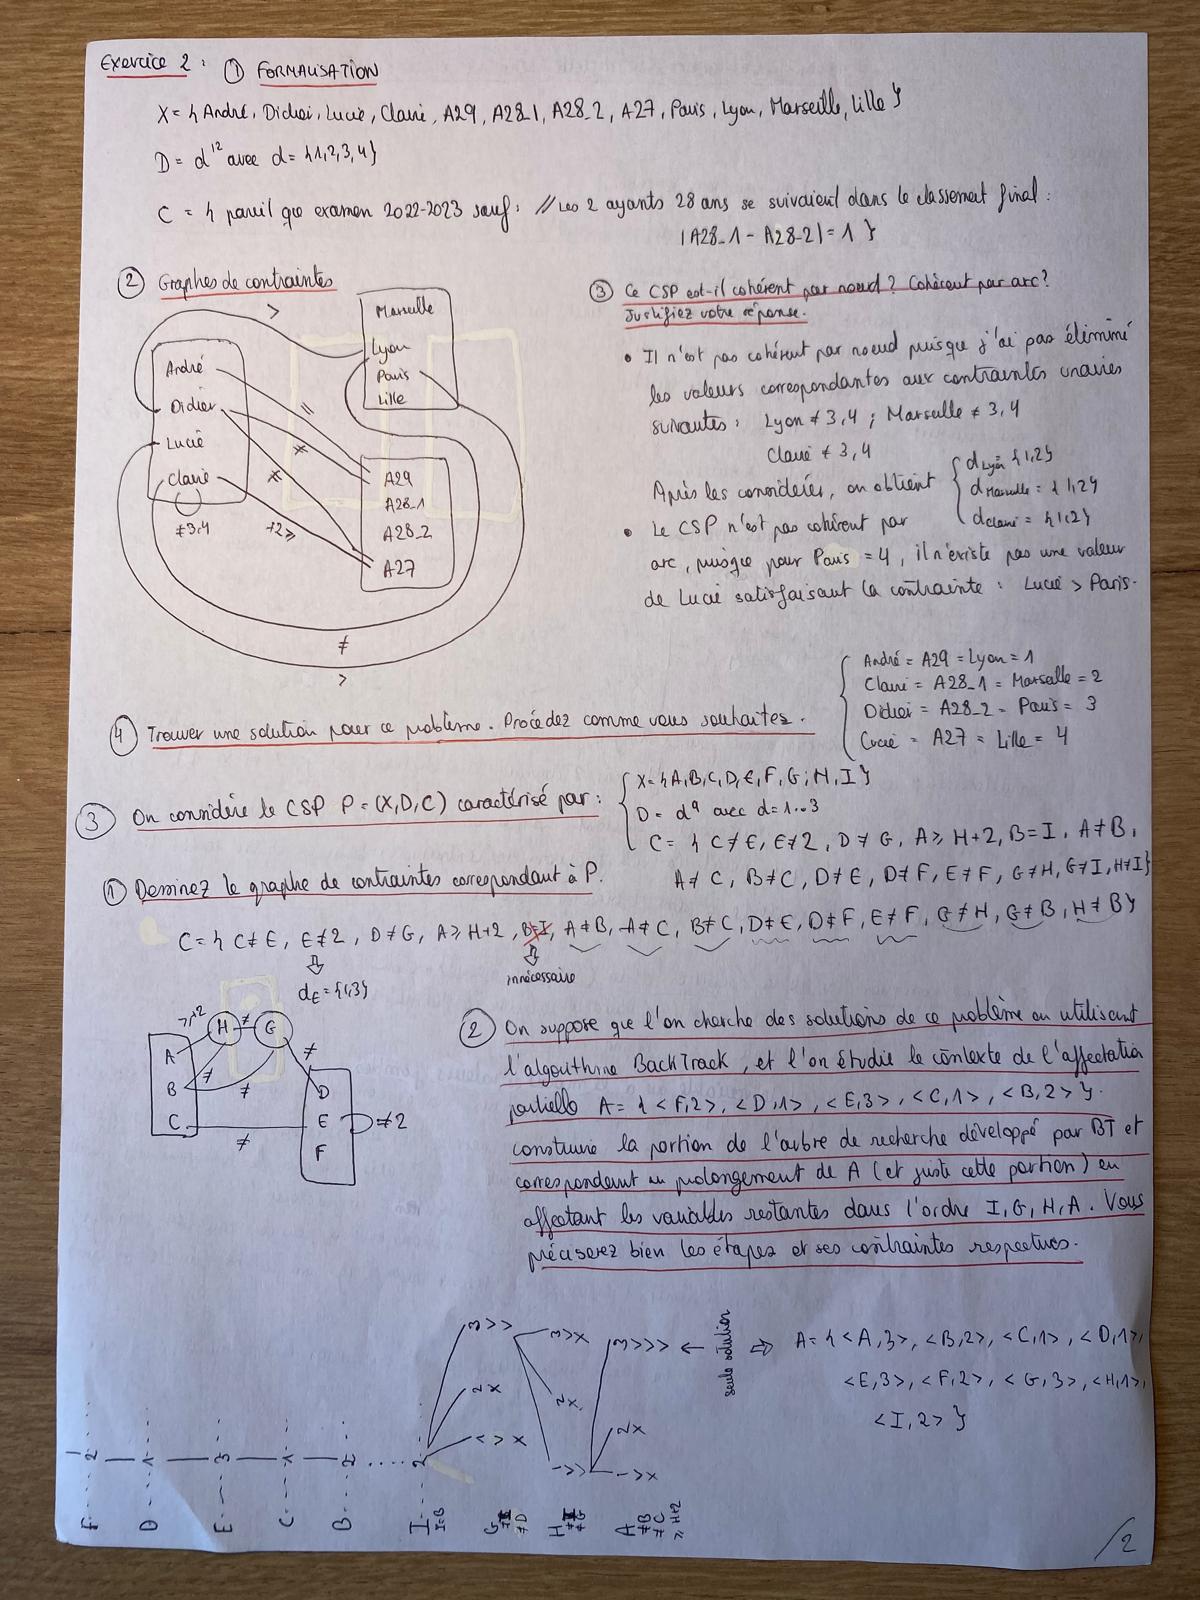 Exercice 2 : ① FORMALISATION
X = { André, Didier, Lucie, Claire, A29, A28_1, A28_2, A27, Paris, Lyon, Marseille, Lille }
D = d¹² avec d = {1,2,3,4}
C = { pareil que examen 2022-2023 sauf : // Les 2 ayants 28 ans se suivaient dans le classement final :
|A28_1 - A28_2| = 1 }
② Graphes de contraintes
>
Marseille
Lyon
Paris
Lille
André
Didier
Lucie
Claire
=
≠
≠
≠3,4
+2≥
A29
A28_1
A28_2
A27
≠
>
③ Ce CSP est-il cohérent par noeud ? Cohérent par arc ?
Justifiez votre réponse.
• Il n'est pas cohérent par noeud puisque j'ai pas éliminé
les valeurs correspondantes aux contraintes unaires
suivantes : Lyon ≠ 3,4 ; Marseille ≠ 3,4
Claire ≠ 3,4
Après les considérer, on obtient { dLyon {1,2}
dMarseille = {1,2}
dClaire = {1,2}
• Le CSP n'est pas cohérent par
arc, puisque pour Paris = 4, il n'existe pas une valeur
de Lucie satisfaisant la contrainte : Lucie > Paris.
④ Trouver une solution pour ce problème. Procédez comme vous souhaitez.
{ André = A29 = Lyon = 1
Claire = A28_1 = Marseille = 2
Didier = A28_2 = Paris = 3
Lucie = A27 = Lille = 4
③ On considère le CSP P = (X,D,C) caractérisé par :
{ X = {A,B,C,D,E,F,G,H,I}
D = d⁹ avec d = 1..3
C = { C≠E, E≠2, D≠G, A≥H+2, B=I, A≠B,
A≠C, B≠C, D≠E, D≠F, E≠F, G≠H, G≠I, H≠I}
① Dessinez le graphe de contraintes correspondant à P.
C = { C≠E, E≠2, D≠G, A≥H+2, B=I, A≠B, A≠C, B≠C, D≠E, D≠F, E≠F, G≠H, G≠B, H≠B}
⇓ ⇓
dE = {1,3} innécessaire
≥+2 H ≠ G
A
B
C
≠
≠
≠
≠
D
E
F
≠2
② On suppose que l'on cherche des solutions de ce problème en utilisant
l'algorithme BackTrack, et l'on étudie le contexte de l'affectation
partielle A = { <F,2>, <D,1>, <E,3>, <C,1>, <B,2> }.
construire la portion de l'arbre de recherche développé par BT et
correspondant au prolongement de A (et juste cette portion) en
affectant les variables restantes dans l'ordre I, G, H, A. Vous
préciserez bien les étapes et ses contraintes respectives.
3 >>
2 x
1 > x
3 > x
2 x
1 >>
3 >>>
2 x
1 > x
← seule solution ⇒ A = { <A,3>, <B,2>, <C,1>, <D,1>,
<E,3>, <F,2>, <G,3>, <H,1>,
<I,2> }
2 — 1 — 3 — 1 — 2 .... 2
F D E C B I G H A
I=B
≠D
≠G
≠B
≠C
≥H+2
/2